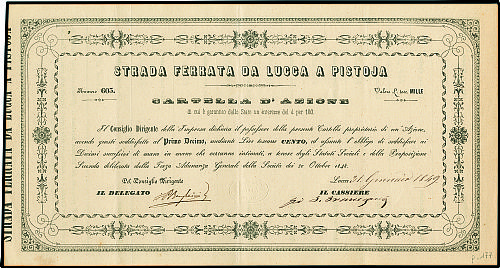 STRADA FERRATA DA LUCCA A PISTOJA
STRADA FERRATA DA LUCCA A PISTOJA
Numero 603.
Valore L. tosc. MILLE
CARTELLA D'AZIONE
di cui è garantito dallo Stato un interesse del 4 per 100.
Il Consiglio Dirigente della Impresa dichiara il possessore della presente Cartella proprietario di un'Azione,
avendo questi soddisfatto al Primo Decimo, mediante Lire toscane CENTO, ed essendo l'obbligo di soddisfare ai
Decimi successivi di mano in mano che verranno intimati, a tenore degli Statuti Sociali e della Proposizione
Seconda deliberata dalla Terza Adunanza Generale della Società dei 20 Ottobre 1848.
Dal Consiglio Dirigente
Lucca 31 Gennaio 1849
IL DELEGATO
IL CASSIERE